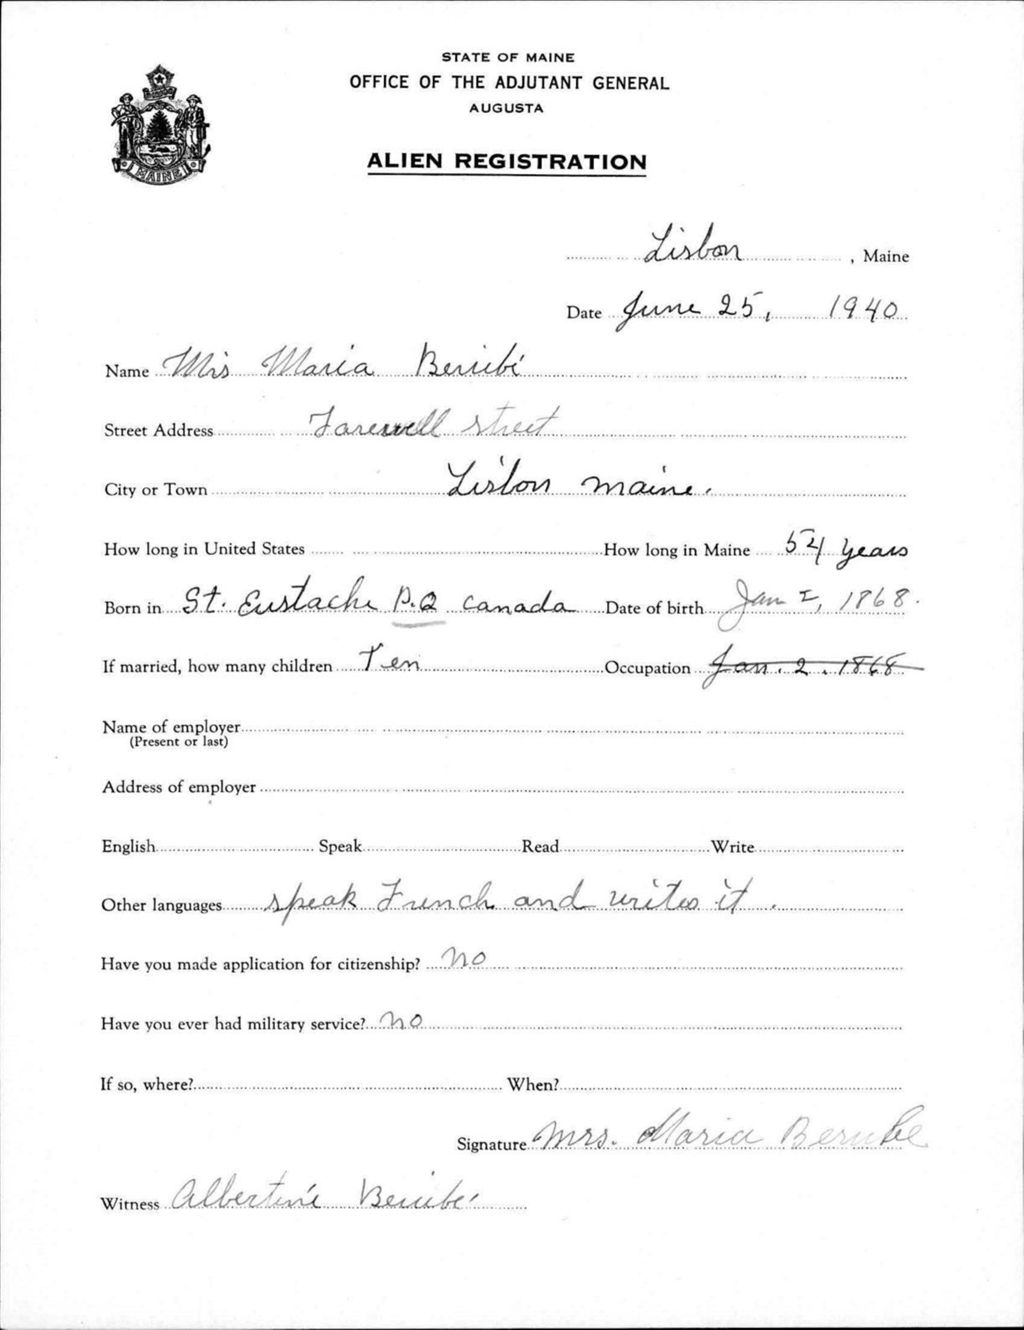 STATE OF MAINE
OFFICE OF THE ADJUTANT GENERAL
AUGUSTA
ALIEN REGISTRATION
MAINE
Lisbon, Maine
Date June 25, 1940
Name Mrs Maria Berubé
Street Address Farewell street
City or Town Lisbon maine.
How long in United States How long in Maine 54 years
Born in St. Eustache P.Q canada Date of birth Jan 2, 1868.
If married, how many children Ten Occupation Jan. 2. 1868
Name of employer
(Present or last)
Address of employer
English Speak Read Write
Other languages speak French and writes it.
Have you made application for citizenship? no
Have you ever had military service? no
If so, where? When?
Signature Mrs. Maria Berube
Witness Albertine Berubé